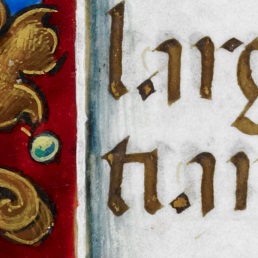 larg
na